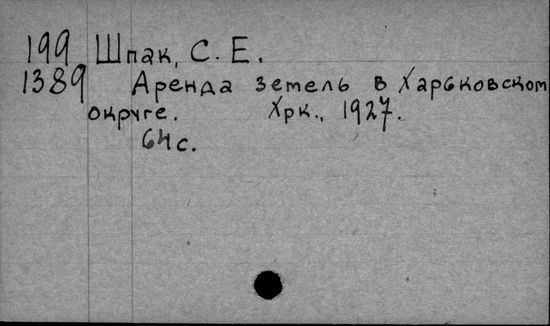 199 Шпак, С. Е.
1389 Аренда земель в Харьковском
округе. Хрк., 1927.
64 с.